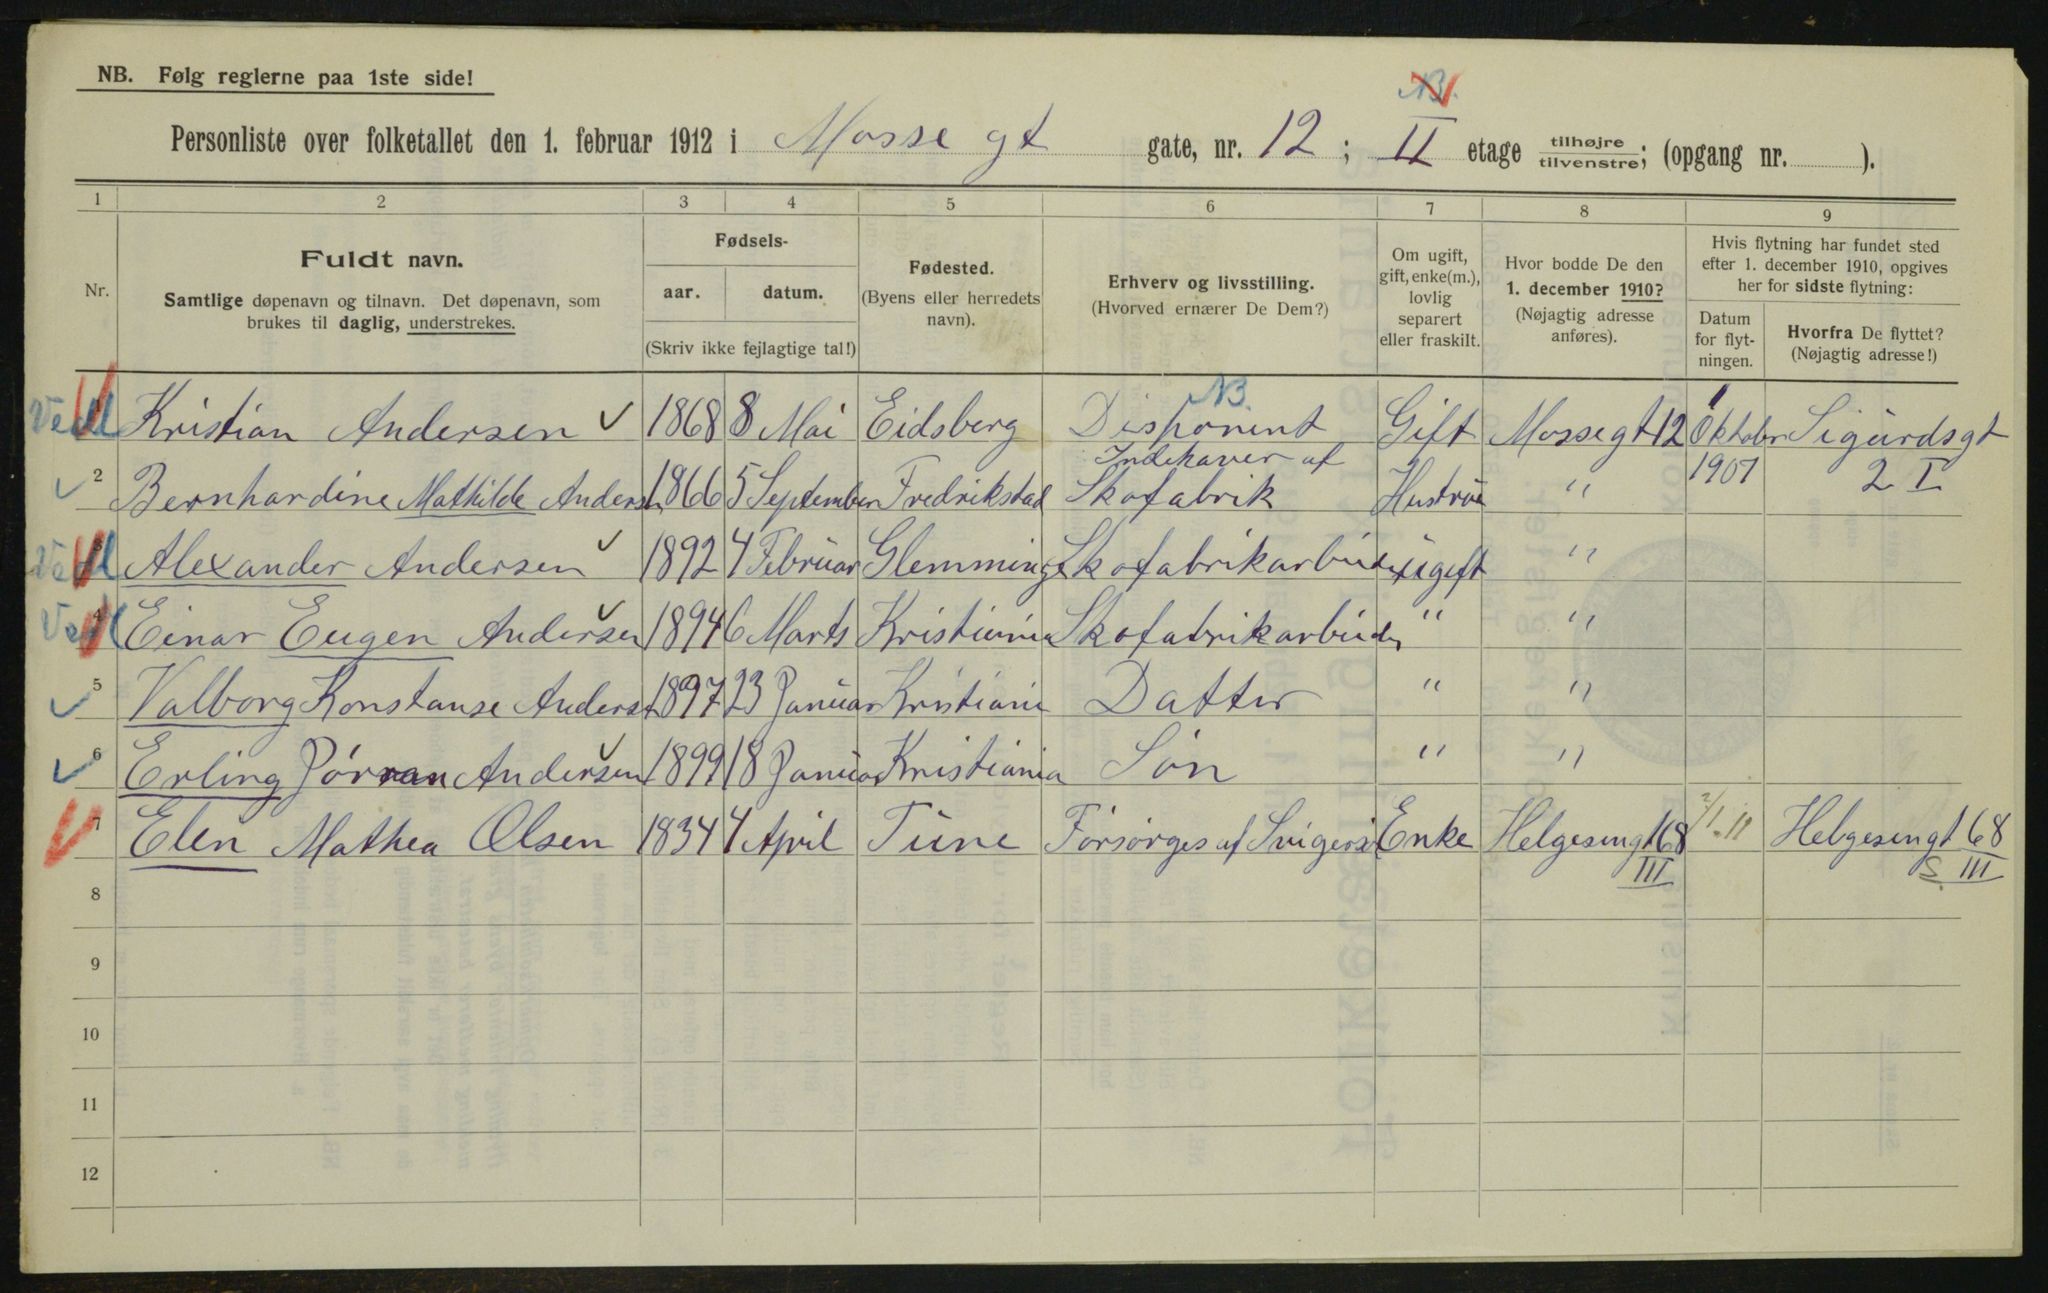 NB. Følg reglerne paa 1ste side!
NB.
Personliste over folketallet den 1. februar 1912 i Mosse gt gate, nr. 12 ; II etage tilhøjre tilvenstre; (opgang nr. ).
1 2 3 4 5 6 7 8 9
Nr.
Fuldt navn.
Samtlige døpenavn og tilnavn. Det døpenavn, som
brukes til daglig, understrekes.
Fødsels-
aar. datum.
(Skriv ikke fejlagtige tal!)
Fødested.
(Byens eller herredets
navn).
Erhverv og livsstilling.
(Hvorved ernærer De Dem?)
Om ugift,
gift, enke(m.),
lovlig
separert
eller fraskilt.
Hvor bodde De den
1. december 1910?
(Nøjagtig adresse
anføres).
Hvis flytning har fundet sted
efter 1. december 1910, opgives
her for sidste flytning:
Datum
for flyt-
ningen.
Hvorfra De flyttet?
(Nøjagtig adresse!)
NB.
Vedl Kristian Andersen 1868 8 Mai Eidsberg Disponent Gift Mossegt 12 Oktober Sigurdsgt
Indehaver af 1907 2 I
2 Bernhardine Mathilde Andersen 1866 5 September Fredrikstad Skofabrik Hustrue "
Vedl 3 Alexander Andersen 1892 4 Februar Glemminge Skofabrikarbeider ugift "
Vedl 4 Einar Eugen Andersen 1894 6 Marts Kristiania Skofabrikarbeider " "
5 Valborg Konstanse Andersen 1897 23 Januar Kristiania Datter " "
6 Erling Jörran Andersen 1899 18 Januar Kristiania Sön " "
7 Elen Mathea Olsen 1834 4 April Tune Forsörges af Svigersön Enke Helgesengt 68 2/1 11 Helgesengt 68
III S. III
8
9
10
11
12